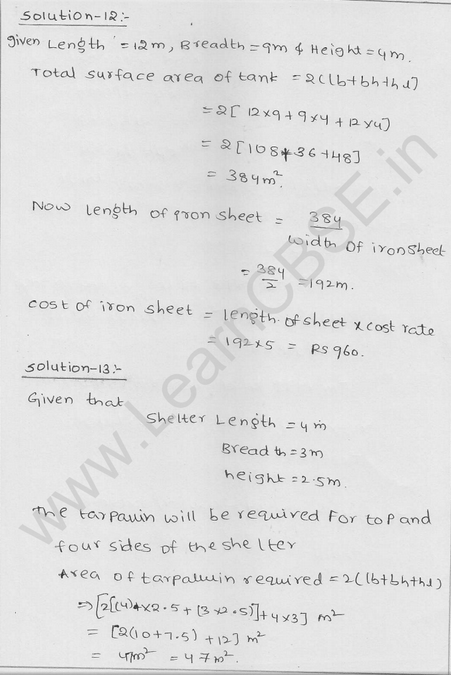 Solution-12:-
Given Length = 12m, Breadth = 9m & Height = 4m.
Total surface area of tank = 2(lb+bh+hl)
= 2[ 12×9 + 9×4 + 12×4]
= 2[108+36+48]
= 384m².
Now length of iron sheet = 384 / width of iron sheet
= 384/2 = 192m.
cost of iron sheet = length of sheet × cost rate
= 192×5 = Rs 960.
Solution-13:-
Given that
Shelter Length = 4m
Breadth = 3m
height = 2.5m
The tarpaulin will be required For top and
four sides of the shelter
Area of tarpaulin required = 2(lb+bh+hl)
⇒ [2[(4)4×2.5 + (3×2.5)] + 4×3] m²
= [2(10+7.5) + 12] m²
= 47m² = 47m².
www.LearnCBSE.in